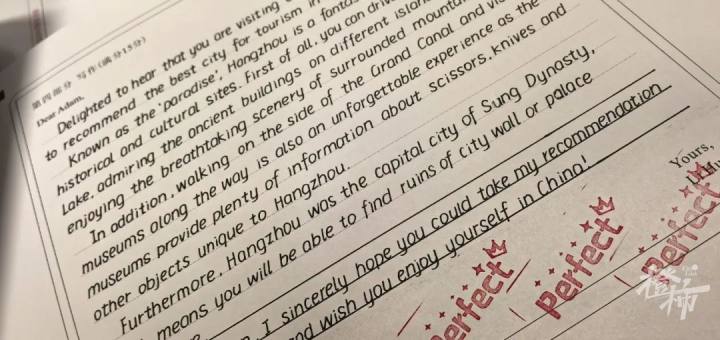 第四部分 写作(满分15分)
Dear Adam,
Delighted to hear that you are visiting
to recommend the best city for tourism in
Known as the 'paradise', Hangzhou is a
historical and cultural sites. First of all, you can
Lake, admiring the ancient buildings on different
enjoying the breathtaking scenery of surrounded
In addition, walking on the side of the Grand Canal and
museums along the way is also an unforgettable experience as the
museums provide plenty of information about scissors, knives and
other objects unique to Hangzhou.
Furthermore, Hangzhou was the capital city of Sung Dynasty,
means you will be able to find ruins of city wall or palace
I sincerely hope you could take my recommendation
wish you enjoy yourself in China!
Yours,
Perfect
Perfect
Perfect
橙柿